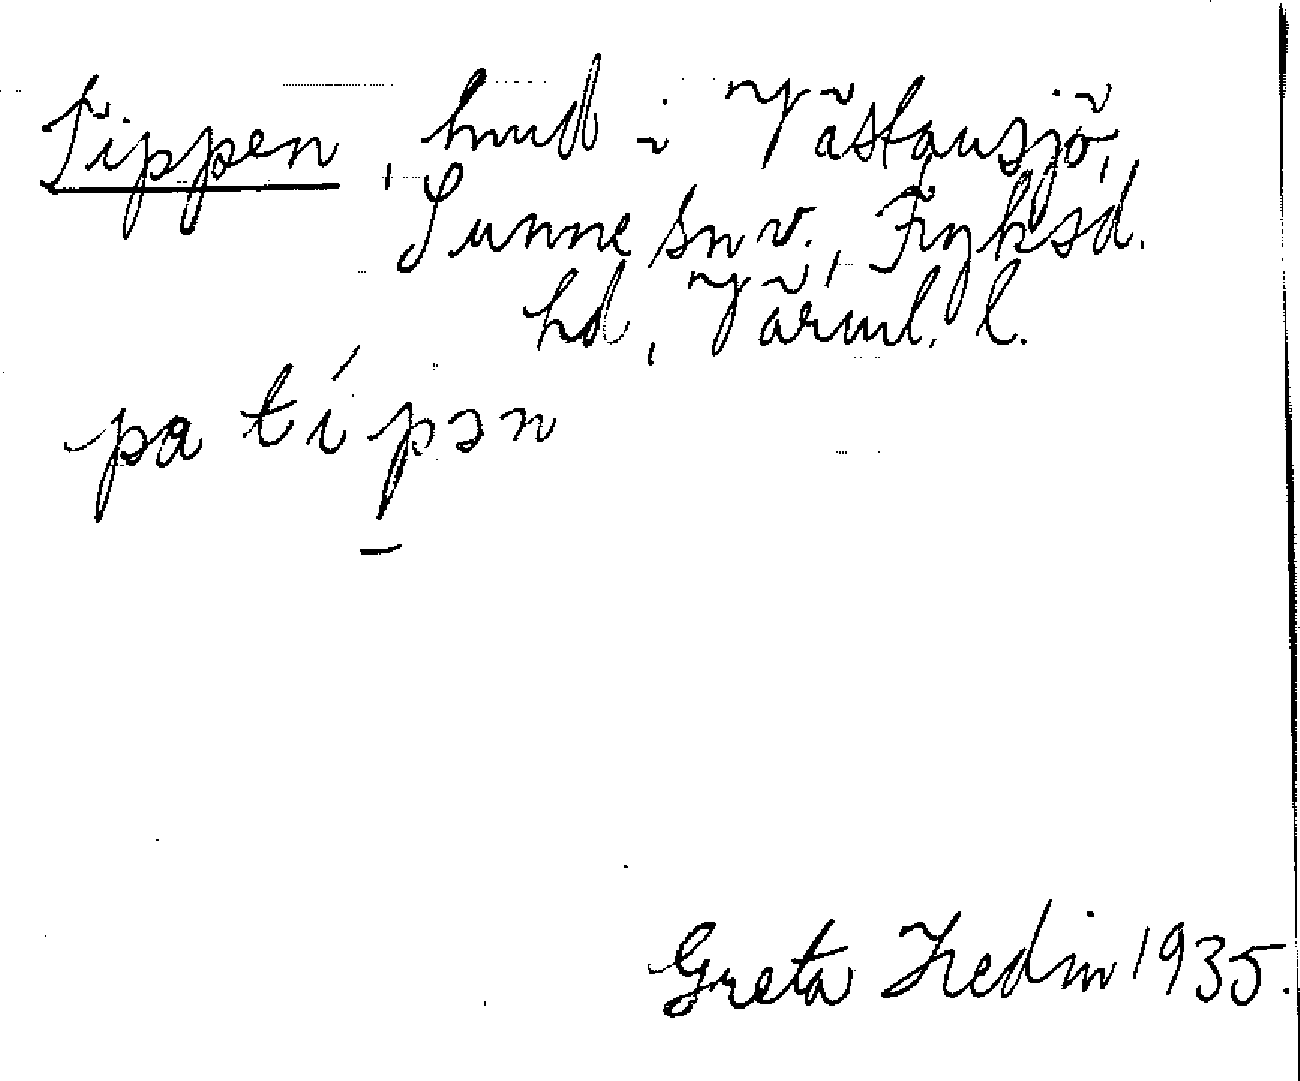 Tippen, hmd i Västansjö,
Sunne sn v., Fryksd.
hd, Värml. l.
pa típən
Greta Hedin 1935.